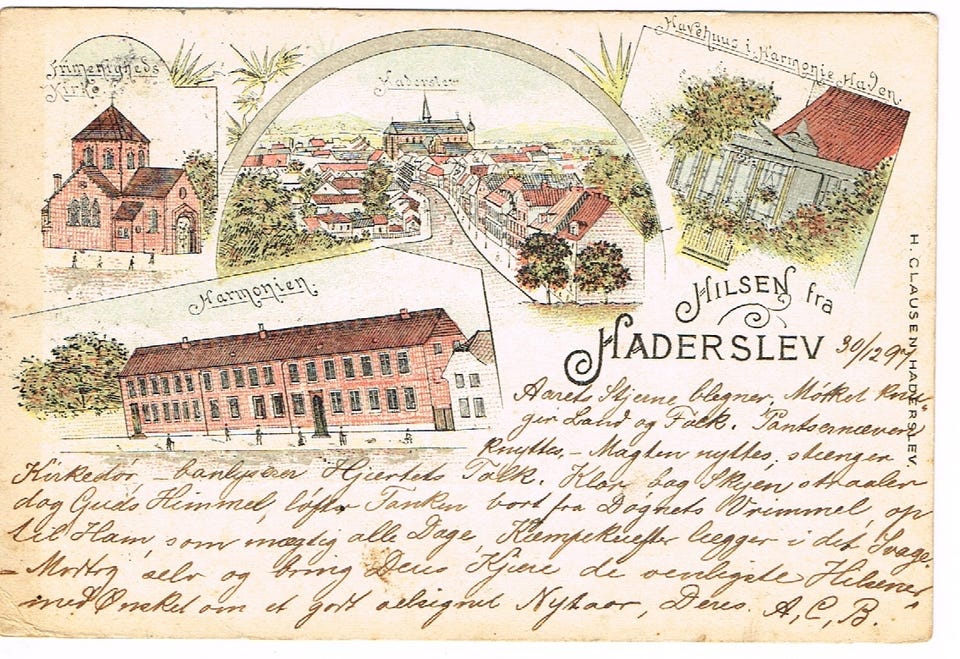 Frimenigheds
Kirke
Haderslev
Havehuus i Harmonie Haven
Harmonien
HILSEN fra
HADERSLEV
H. CLAUSEN HADERSLEV.
30/12 97
Aarets Stjerne blegner, Mørket knu
ger Land og Folk. Pantsernæven
knyttes, – Magten nyttes, stænger
Kirkedør – banlyser Hjertets Tolk. Klar bag Skyen straaler
dog Guds Himmel, løfter Tanken bort fra Døgnets Vrimmel, op
til Ham, som mægtig alle Dage, Kiæmpekræfter lægger i det Svage
– Modtag selv og bring Deres Kjære de venligste Hilsener
med Ønsket om et godt velsignet Nytaar, Deres A, C, B.